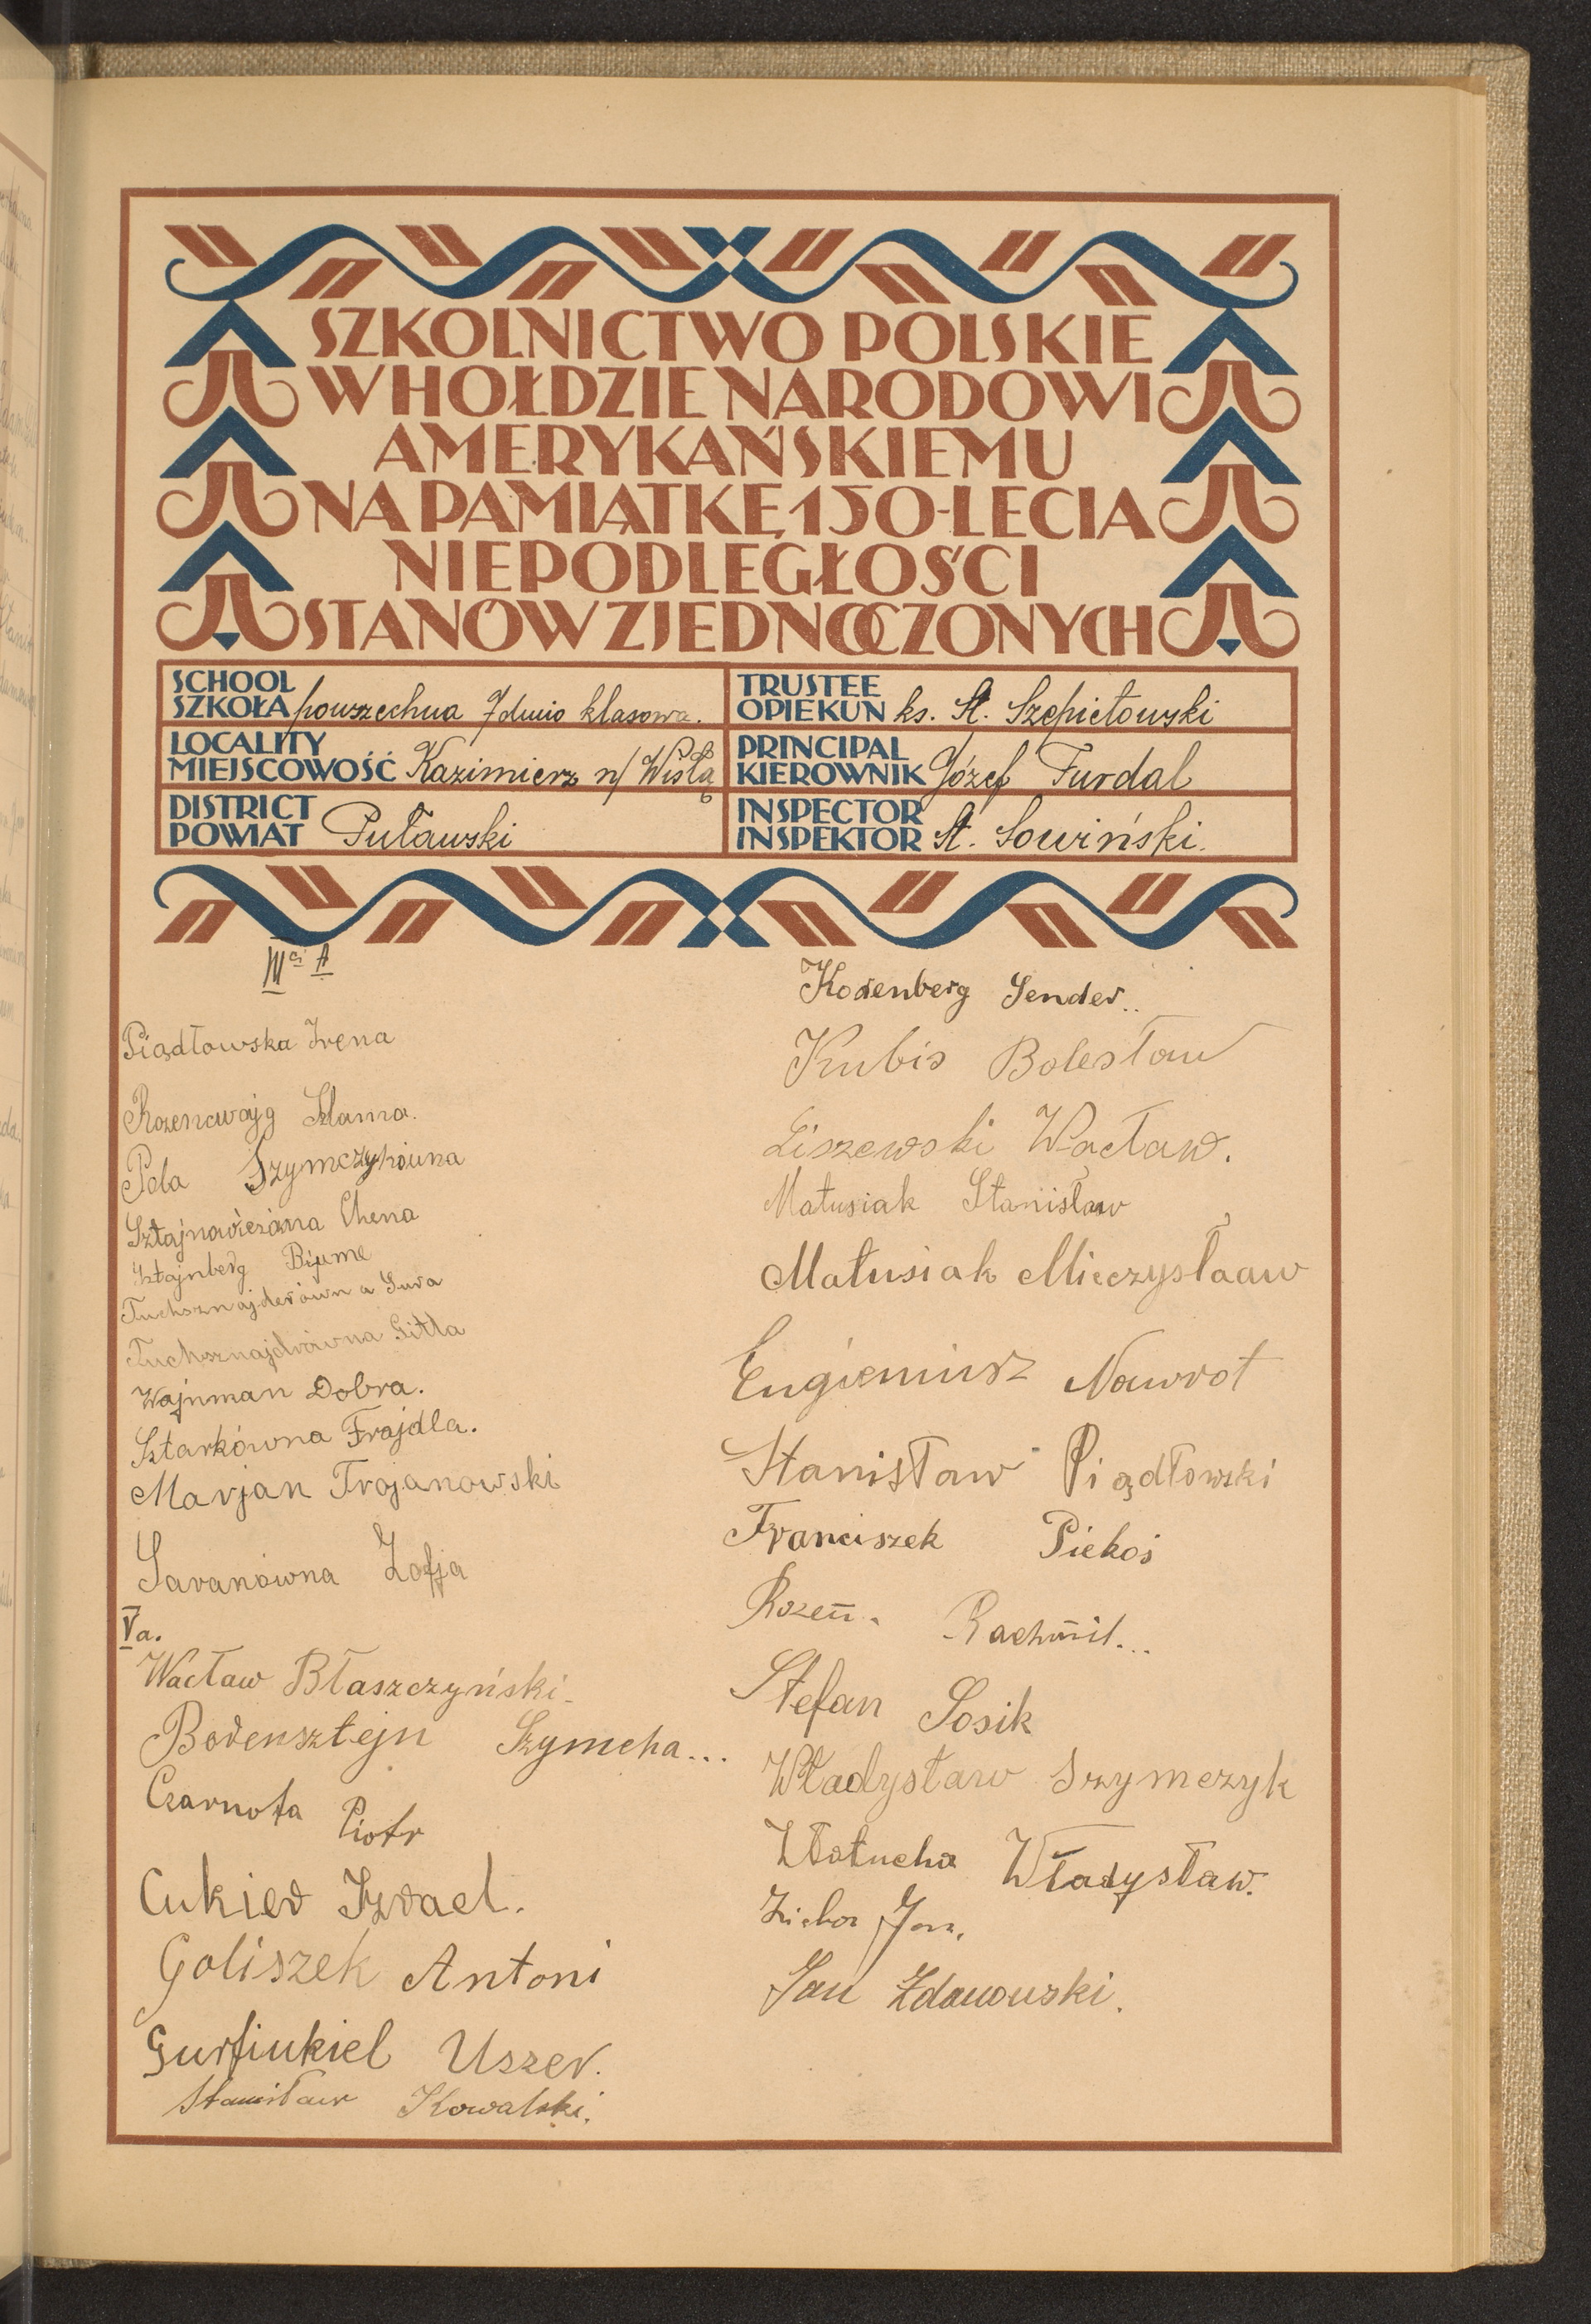 SZKOLNICTWO POLSKIE
W HOŁDZIE NARODOWI
AMERYKAŃSKIEMU
NA PAMIĄTKĘ 150-LECIA
NIEPODLEGŁOŚCI
STANÓW ZJEDNOCZONYCH
SCHOOL
SZKOŁA powszechna 7dmio klasowa.
LOCALITY
MIEJSCOWOŚĆ Kazimierz n/Wisłą
DISTRICT
POWIAT Puławski
TRUSTEE
OPIEKUN ks. St. Szepietowski
PRINCIPAL
KIEROWNIK Józef Furdal
INSPECTOR
INSPEKTOR St. Sowiński.
Piądłowska Irena
Rozencwajg Szlama.
Pola Szymczykówna
Chena
Sztajnberg
Tuchsznajderówna Sura
Tuchsznajdrówna Gitla
Wajnman Dobra.
Sztarkówna Frajdla.
Marjan Trojanowski
Saranówna Zofja
Va.
Wacław Błaszczyński.
Borensztejn Szymcha...
Czarnota Piotr
Cukier Izrael.
Goliszek Antoni
Gurfinkiel Uszer.
Stanisław Kowalski.
Korenberg Sender..
Kubis Bolesław
Liszewski Wacław.
Matusiak Stanisław
Matusiak Mieczysłaaw
Eugieniusz Nawrot
Stanisław Piądłowski
Franciszek Piekoś
Rozen. Rachmil...
Stefan Sosik
Władysław Szymczyk
Władysław.
Jan Zdanowski.